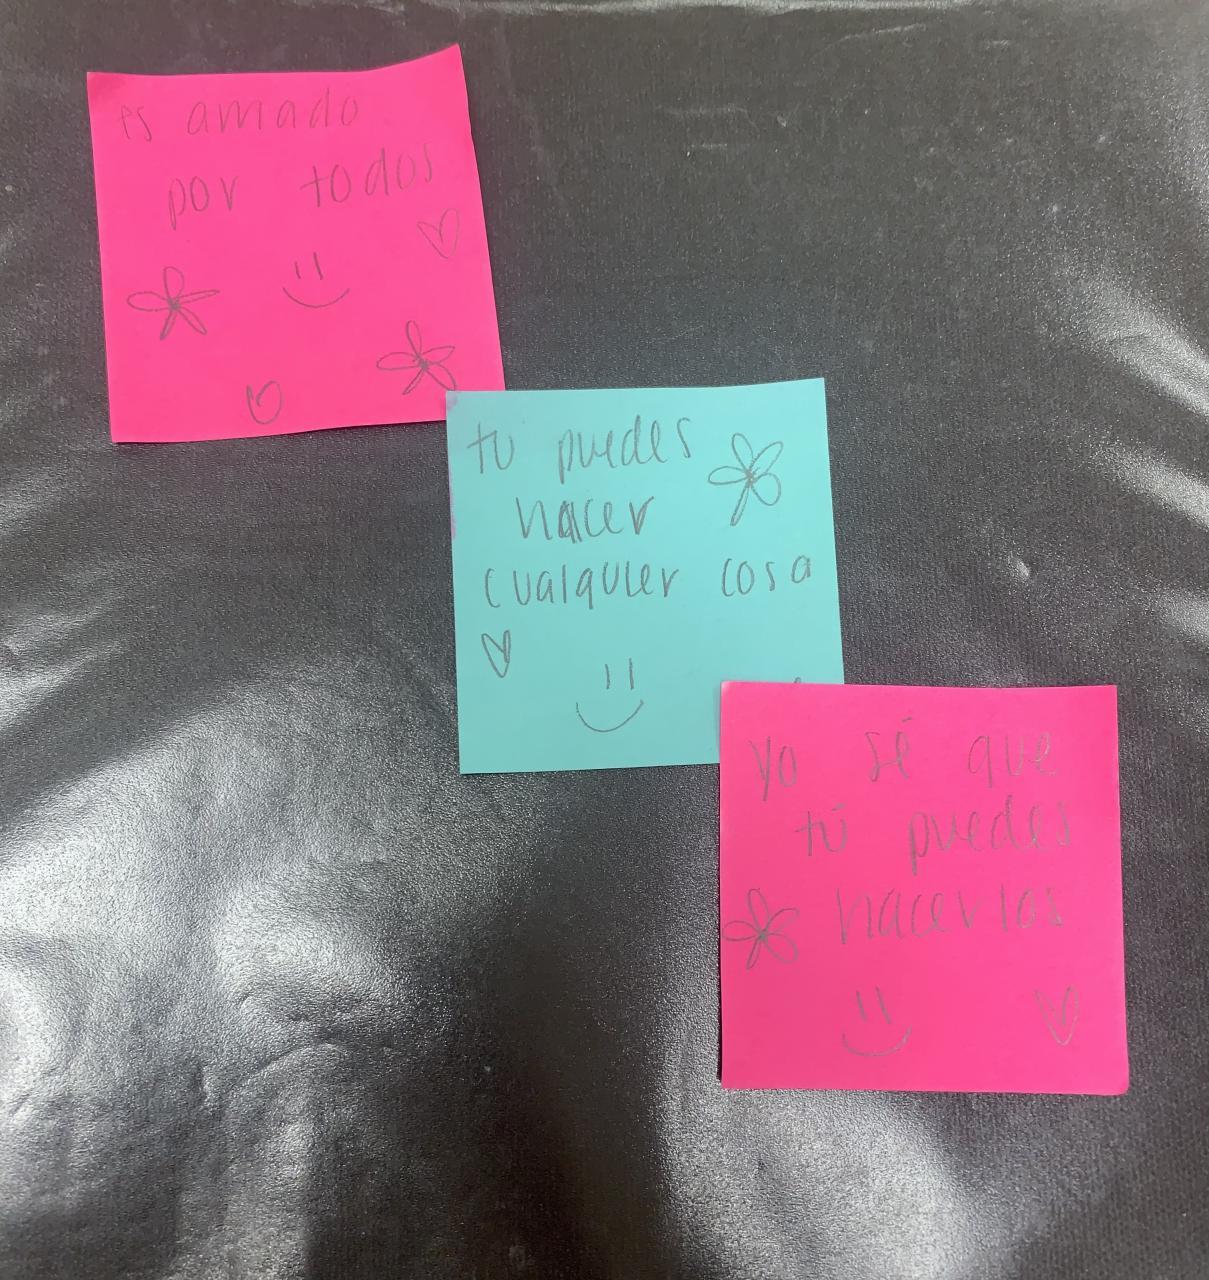 es amado
por todos
tu puedes
hacer
cualquier cosa
yo sé que
tú puedes
hacerlos